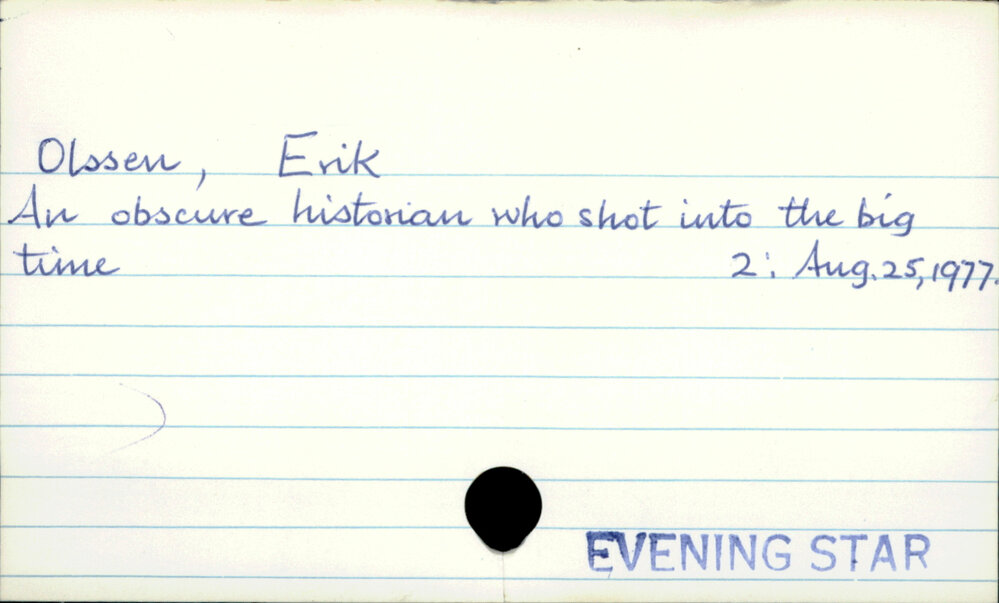 Olssen, Erik
An obscure historian who shot into the big
time 2: Aug. 25, 1977.
EVENING STAR